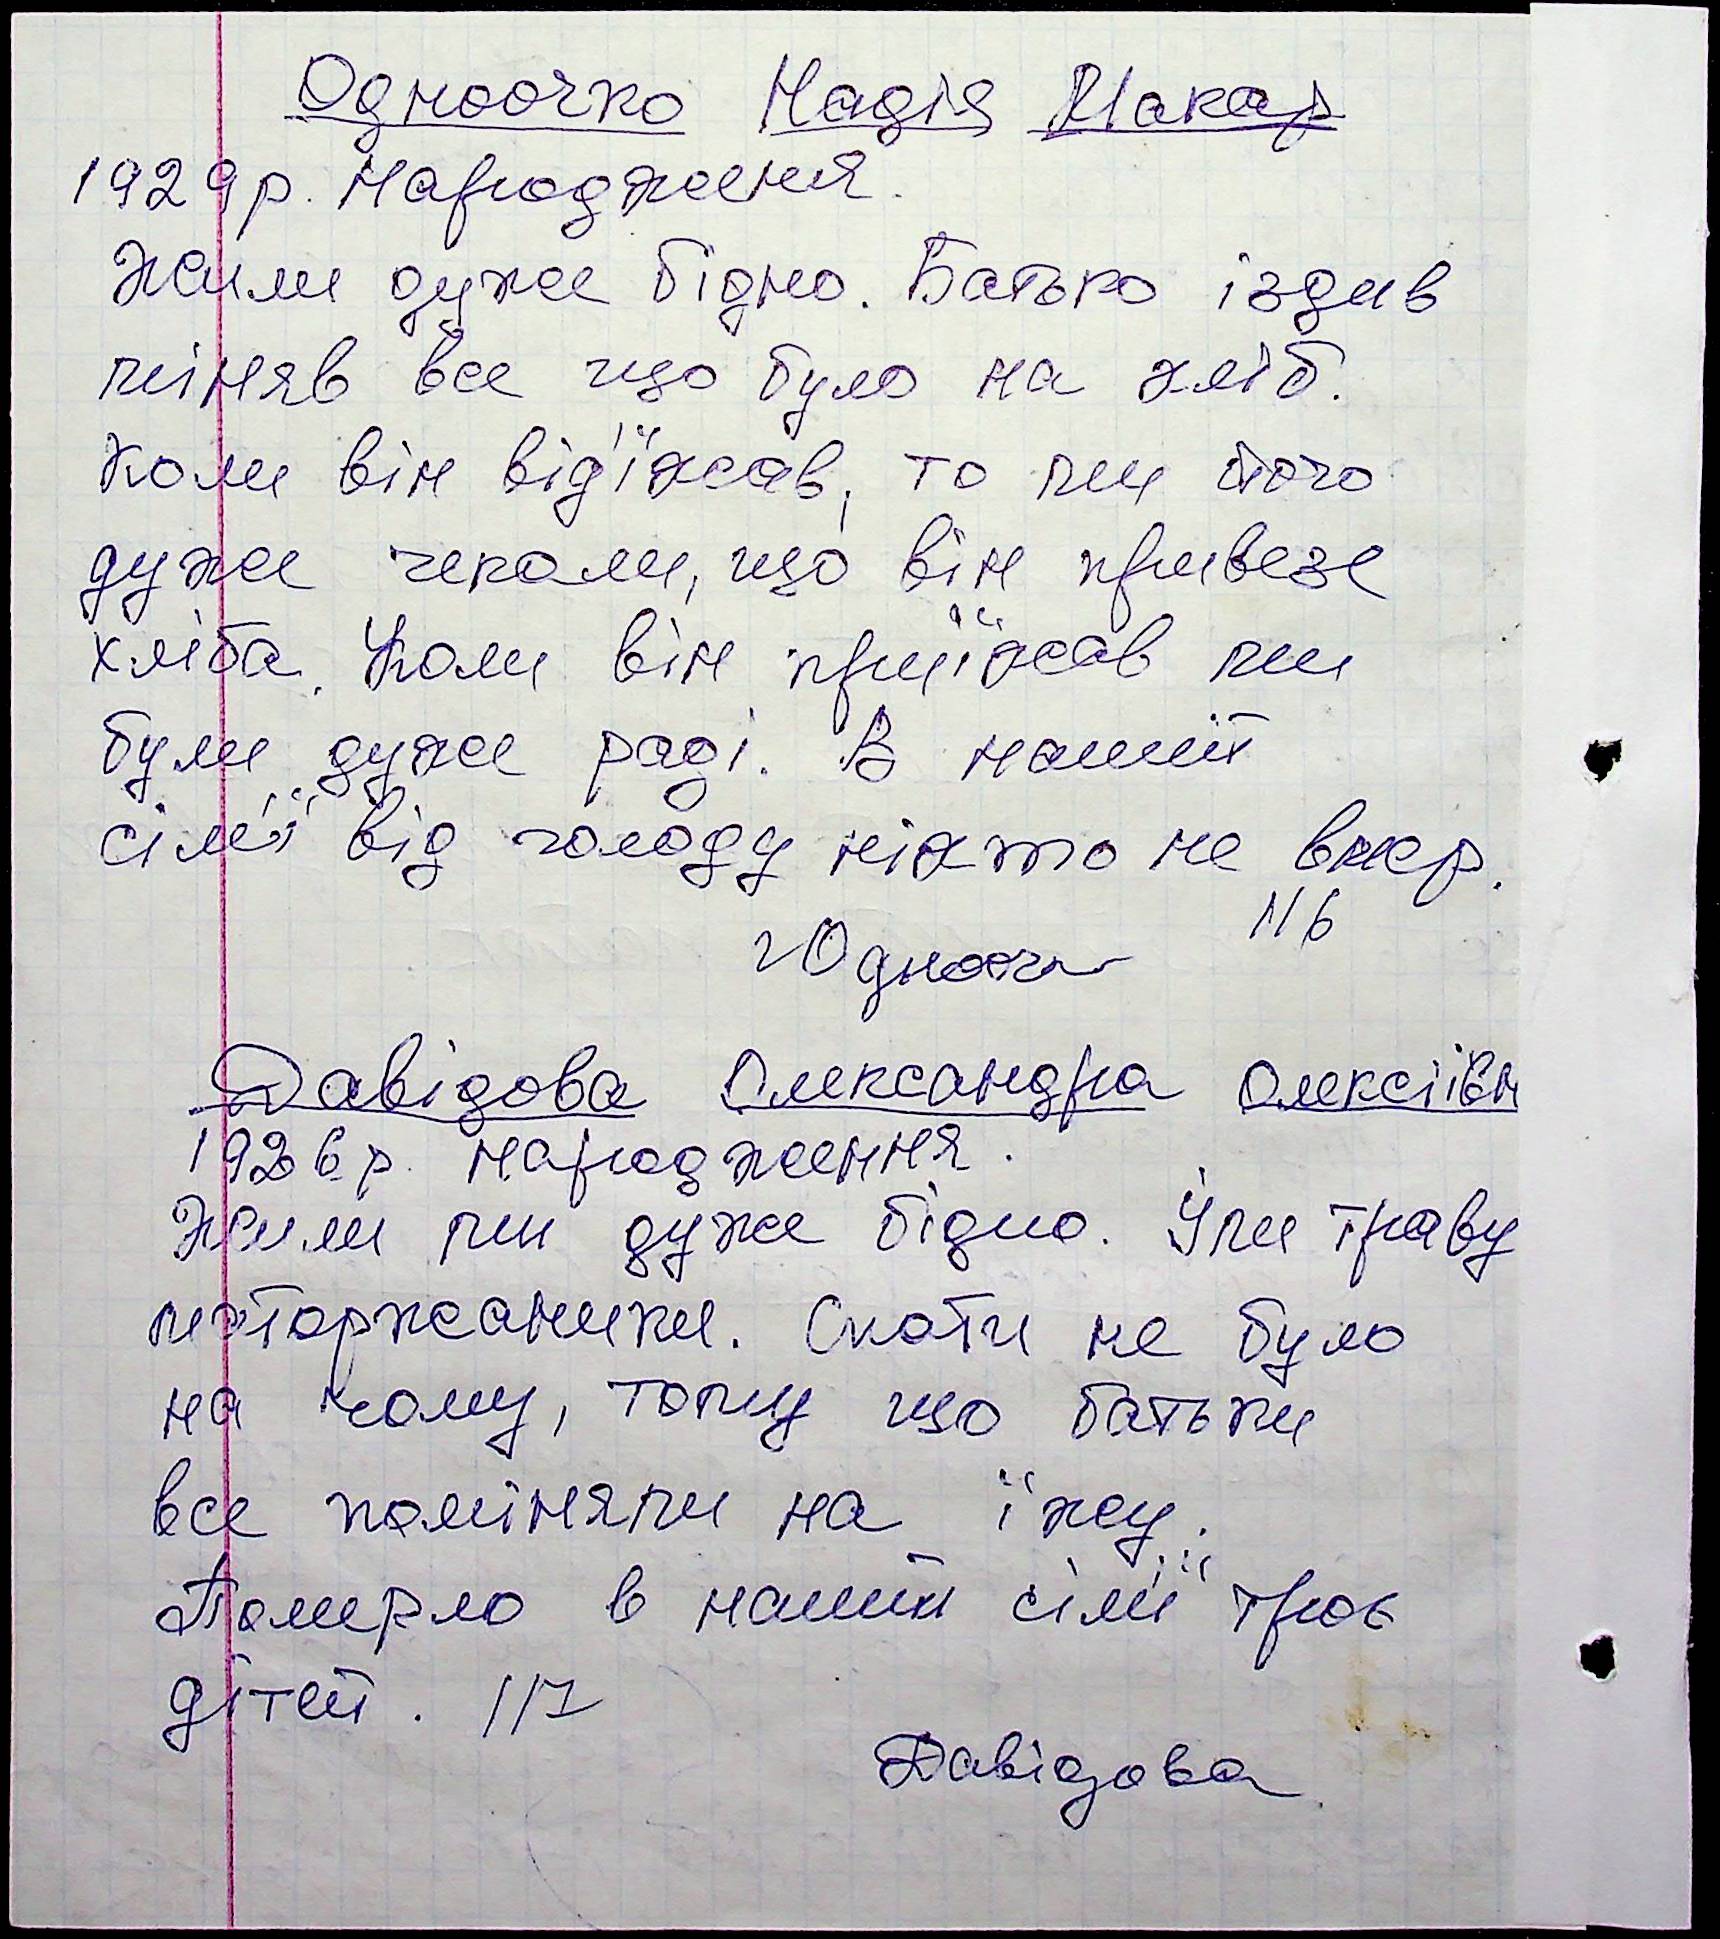 Одноочко Надія Макар
1929р. народження.
Жили дуже бідно. Батько їздив
міняв все що було на хліб.
Коли він від'їжав, то ми його
дуже чекали, що він привезе
хліба. Коли він приїжав ми
були дуже раді. В нашій
сім'ї від голоду ніхто не вмер.
116
Одноочк
Давідова Олександра Олексіївн
1926р. народження.
Жили ми дуже бідно. Їли траву
моторжаники. Спати не було
на чому, тому що батьки
все поміняли на їжу.
Померло в нашій сім'ї троє
дітей. 117
Давідова